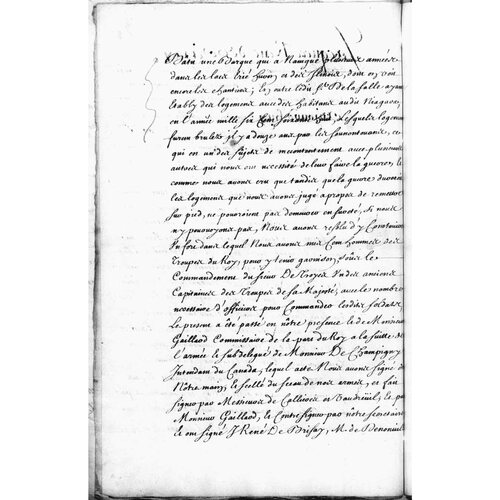 Bati une Barque qui a Navigué plusieurs années
dans les lacs Erié, huron, et des Ilinois, dont on voit
encore les chantiers; et, outre ledit Sr. De la salle ayant
establÿ des logemens avec des habitans audit Niagara,
en l'année mille six Cens soixante , lesquels logemens
furent brulez il y a douze ans par les sonnontouans, ce
qui est un des sujets de mecontentement avec plusieurs
autres qui nous ont necessité de leur faire la guerre, et
comme nous avons cru que tandis que la guerre dureroit
les logemens que nous avons jugé a propos de remettre
sur pied, ne pouroient pas demeurer en sureté, si nous
n'y pourvoyons pas, Nous avons resolu d'y Construire
Un fort dans lequel Nous avons mis Cent hommes des
Troupes du Roy, pour y tenir garnison, sous le
Commandement du sieur De Troyes Un des anciens
Capitaines des Troupes de sa Majesté, avec le nombre
necessaire d'officiers pour Commander lesdits soldats
Le present a été passé en nôtre presence et de Monsieur
Gaillard Commissaire de la part du Roy a la suitte de
l'armée et subdelegué de Monsieur De Champigny
Intendant du Canada, lequel acte Nous avons signé de
Nôtre main, et scellé du sceau de nos armes, et fait
signer par Messieurs de Callieres et Vaudreüil, et par
Monsieur Gaillard, et Contresigner par nôtre secretaire
et ont signé J. René De Brisay, M. de Denonville